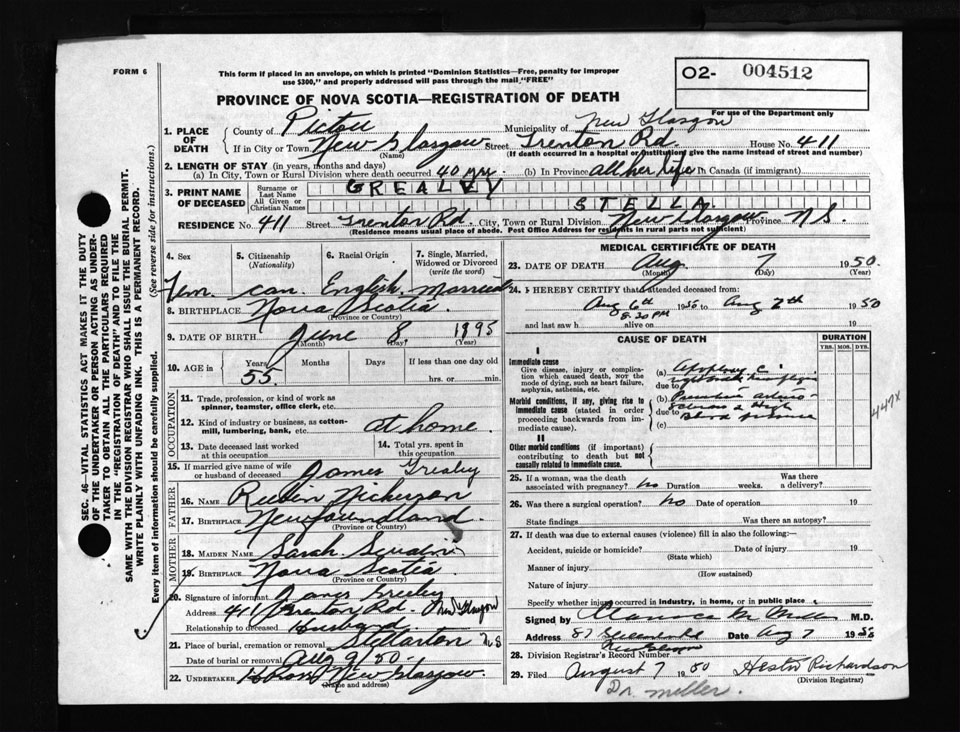 FORM 6
This form if placed in an envelope, on which is printed "Dominion Statistics—Free, penalty for improper
use $300," and properly addressed will pass through the mail "FREE"
O2- 004512
For use of the Department only
PROVINCE OF NOVA SCOTIA—REGISTRATION OF DEATH
1. PLACE OF DEATH
County of Pictou Municipality of New Glasgow
If in City or Town New Glasgow Street Trenton Rd. House No. 411
(Name) (If death occurred in a hospital or institution, give the name instead of street and number)
2. LENGTH OF STAY (in years, months and days)
(a) In City, Town or Rural Division where death occurred 40 yrs. (b) In Province all her life In Canada (if immigrant)
3. PRINT NAME OF DECEASED
Surname or Last Name GREALEY
All Given or Christian Names STELLA
RESIDENCE No. 411 Street Trenton Rd. City, Town or Rural Division New Glasgow Province N.S.
(Residence means usual place of abode. Post Office Address for residents in rural parts not sufficient)
4. Sex 5. Citizenship (Nationality) 6. Racial Origin 7. Single, Married, Widowed or Divorced (write the word)
Fem. Can. English. Married
8. BIRTHPLACE Nova Scotia
(Province or Country)
9. DATE OF BIRTH June 8 1895
(Month) (Day) (Year)
10. AGE in Years Months Days If less than one day old
55 hrs. or min.
OCCUPATION
11. Trade, profession, or kind of work as
spinner, teamster, office clerk, etc.
12. Kind of industry or business, as cotton-
mill, lumbering, bank, etc. at home.
13. Date deceased last worked
at this occupation
14. Total yrs. spent in
this occupation
15. If married give name of wife
or husband of deceased James Grealey
FATHER
16. NAME Reubin Nickerson
17. BIRTHPLACE Newfoundland.
(Province or Country)
MOTHER
18. MAIDEN NAME Sarah
19. BIRTHPLACE Nova Scotia
(Province or Country)
20. Signature of informant James Grealey
Address 411 Trenton Rd. New Glasgow
Relationship to deceased Husband.
21. Place of burial, cremation or removal Stellarton N S
Date of burial or removal Aug 9/50.
22. UNDERTAKER New Glasgow.
(Name and address)
MEDICAL CERTIFICATE OF DEATH
23. DATE OF DEATH Aug. 7 1950.
(Month) (Day) (Year)
24. I HEREBY CERTIFY that I attended deceased from
Aug 6th 1950 to Aug 7th 1950
8.20 PM
and last saw h alive on 19
CAUSE OF DEATH
DURATION
YRS. MOS. DYS.
I
Immediate cause
Give disease, injury or complica-
tion which caused death, NOT the
mode of dying, such as heart failure,
asphyxia, asthenia, etc.
(a) Apoplexy c
right side hemiplegia
due to
Morbid conditions, if any, giving rise to
immediate cause (stated in order
proceeding backwards from im-
mediate cause).
(b) arterio-
sclerosis & High
due to
Blood pressure
(c)
447x
II
Other morbid conditions (if important)
contributing to death but not
causally related to immediate cause.
25. If a woman, was the death
associated with pregnancy? no Duration weeks. Was there
a delivery?
26. Was there a surgical operation? no Date of operation 19
State findings Was there an autopsy?
27. If death was due to external causes (violence) fill in also the following:—
Accident, suicide or homicide? Date of injury 19
(State which)
Manner of injury
(How sustained)
Nature of injury
Specify whether injury occurred in industry, in home, or in public place
Signed by Clarence M Miller M.D.
Address 87 Date Aug 7 1950
New Glasgow
28. Division Registrar's Record Number
29. Filed August 7 1950 Hester Richardson
(Division Registrar)
Dr. Miller.
SEC. 46—VITAL STATISTICS ACT MAKES IT THE DUTY
OF THE UNDERTAKER OR PERSON ACTING AS UNDER-
TAKER TO OBTAIN ALL THE PARTICULARS REQUIRED
IN THE "REGISTRATION OF DEATH" AND TO FILE THE
SAME WITH THE DIVISION REGISTRAR WHO SHALL ISSUE THE BURIAL PERMIT.
WRITE PLAINLY WITH UNFADING INK. THIS IS A PERMANENT RECORD.
Every item of information should be carefully supplied. (See reverse side for instructions.)